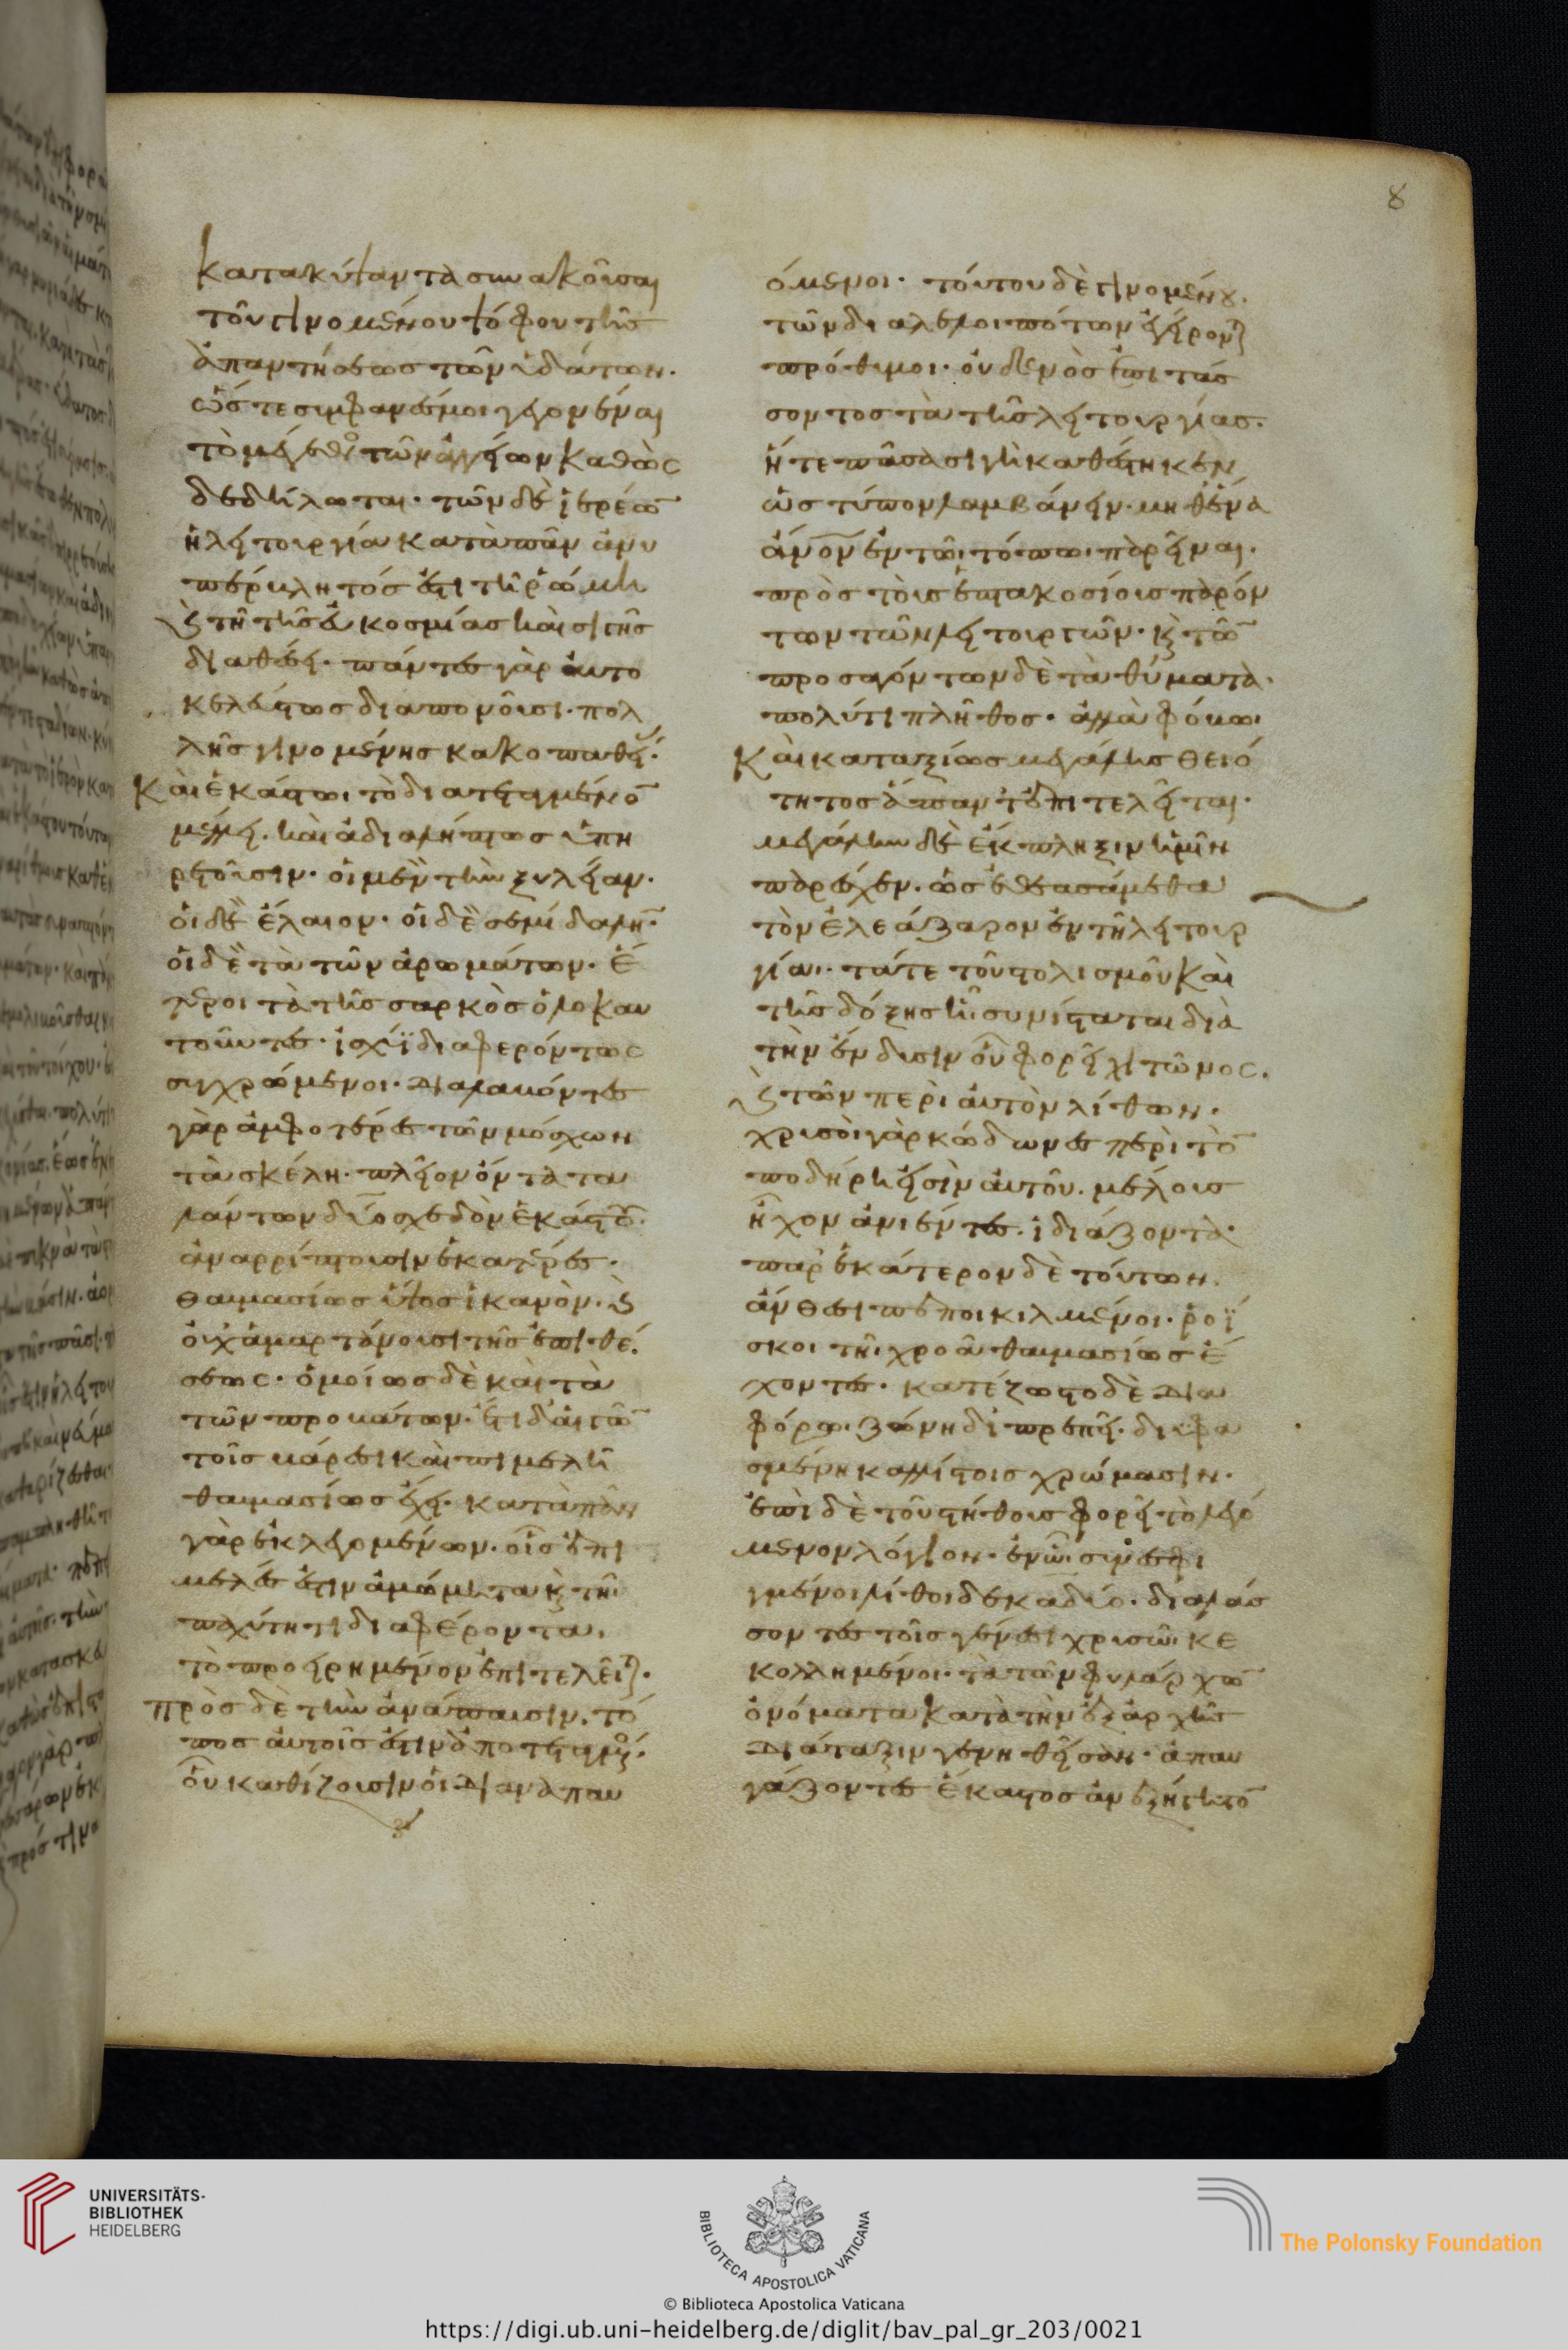 8
κατακύψαντα συνακοῦσαι
τοῦ γινομένου ψόφου τῆς
ἀπαντήσεως τῶν ὑδάτων·
ὥστε συμφανές μοι γεγονέναι
τὸ μέγεθος τῶν ἀγγείων καθὼς
δεδήλωται· τῶν δὲ ἱερέων
ἡ λειτουργία κατὰ πᾶν ἀνυ
πέρβλητός ἐστι τῇ ῥώμῃ
καὶ τῇ τῆς εὐκοσμίας καὶ σιγῆς
διαθέσει· πάντες γὰρ αὐτο
κελεύστως διαπονοῦσι· πολ
λῆς γινομένης κακοπαθείας·
Καὶ ἑκάστωι τὸ διατεταγμένον
μέλει· καὶ ἀδιαλείπτως ὑπη
ρετοῦσιν· οἱ μὲν τὴν ξυλείαν·
οἱ δὲ ἔλαιον· οἱ δὲ σεμίδαλιν·
οἱ δὲ τὰ τῶν ἀρωμάτων· ἕ
τεροι τὰ τῆς σαρκὸς ὁλοκαυ
τοῦντες· ἰσχύϊ διαφερόντως
συγχρώμενοι· διαλαβόντες
γὰρ ἀμφοτέρες τῶν μόσχων
τὰ σκέλη· πλεῖον ὄντα τα
λάντων δύο σχεδὸν ἑκάστου·
ἀναρρίπτουσιν ἑκατέρες·
θαυμασίως ὕψος ἱκανὸν· καὶ
οὐχ ἁμαρτάνουσι τῆς ἐπιθέ
σεως· ὁμοίως δὲ καὶ τὰ
τῶν προβάτων· ἔτι δ' αἰγῶν
τοῖς βάρεσι καὶ πιμελῇ
θαυμασίως ἔχει· κατὰ πᾶν
γὰρ ἐκλεγομένων· οἷς ἐπι
μελές ἐστιν ἀμώμητα καὶ τῇ
παχύτητι διαφέροντα·
τὸ προειρημένον ἐπιτελεῖται·
πρὸς δὲ τὴν ἀνάπαυσιν· τό
πος αὐτοῖς ἐστιν ἀποτεταγμένος·
οὗ καθίζουσιν οἱ διαναπαυ
όμενοι· τούτου δὲ γινομένου·
τῶν διαλελοιπότων ἐγείρονται
πρόθυμοι· οὐδενὸς ἐπιτάσ
σοντος τὰ τῆς λειτουργίας·
ἥ τε πᾶσα σιγὴ καθέστηκεν
ὡς τύπον λαμβάνειν· μηθένα
ἄνον ἐν τῶι τόπωι παρεῖναι·
πρὸς τοὺς ἑπτακοσίους παρόν
των τῶν λειτουργῶν· καὶ τῶν
προσαγόντων δὲ τὰ θύματα
πολύ τι πλῆθος· ἀλλὰ φόβωι
Καὶ καταξίως μεγάλης θειό
τητος ἅπαντ' ἐπιτελεῖται·
μεγάλην δὲ ἔκπληξιν ἡμῖν
παρέσχεν· ὡς ἐθεασάμεθα
τὸν ἐλεάζαρον ἐν τῇ λειτουρ
γίαι· τά τε τοῦ στολισμοῦ καὶ
τῆς δόξης ἣ συνίσταται διὰ
τὴν ἔνδυσιν οὗ φορεῖ χιτῶνος·
καὶ τῶν περὶ αὐτὸν λίθων·
χρυσοῖ γὰρ κώδωνες περὶ τὸν
ποδήρη εἰσὶν αὐτοῦ· μέλους
ἦχον ἀνιέντες· ἰδιάζοντα·
παρ' ἑκάτερον δὲ τούτων·
ἄνθεσι πεποικιλμένοι· ῥοΐ
σκοι τῇ χρόᾳ θαυμασίως ἔ
χοντες· κατέζωστο δὲ δια
φόρωι ζώνῃ διπρεπεῖ· διυφα
σμένῃ καλλίστοις χρώμασιν·
ἐπὶ δὲ τοῦ στήθους φορεῖ τὸ λεγό
μενον λόγιον· ἐν ᾧ συνεσφι
γμένοι λίθοι δεκαδύο· διαλάσ
σοντες τοῖς γένεσι χρυσῶι κε
κολλημένοι· τὰ τῶν φυλάρχων
ὀνόματα κατὰ τὴν ἐξ ἀρχῆς
διάταξιν γενηθεῖσαν· ἀπαυ
γάζοντες ἕκαστος ἀνεξήγητον
UNIVERSITÄTS-
BIBLIOTHEK
HEIDELBERG
BIBLIOTECA APOSTOLICA VATICANA
The Polonsky Foundation
© Biblioteca Apostolica Vaticana
https://digi.ub.uni-heidelberg.de/diglit/bav_pal_gr_203/0021